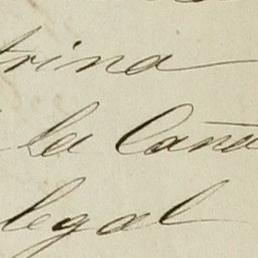 trina
la Caña
legal